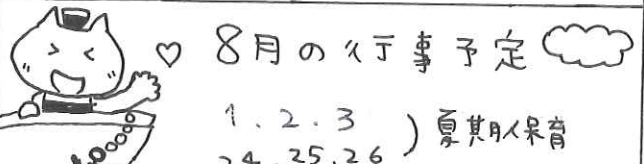 8月の行事予定
1.2.3
24.25.26
) 夏期保育